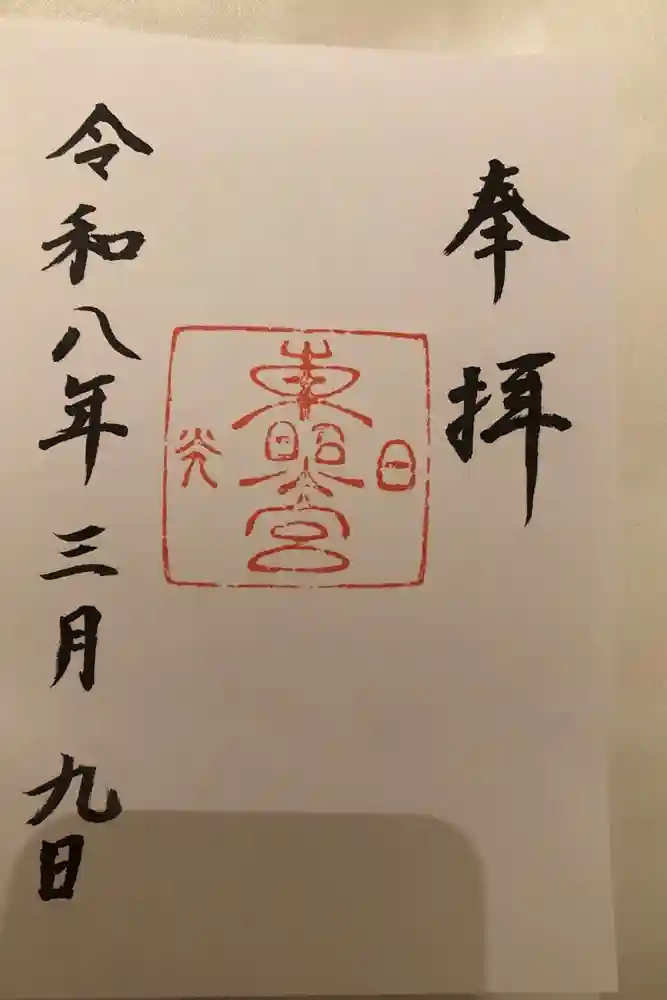 奉拝
日
東照宮
光
令和八年三月九日